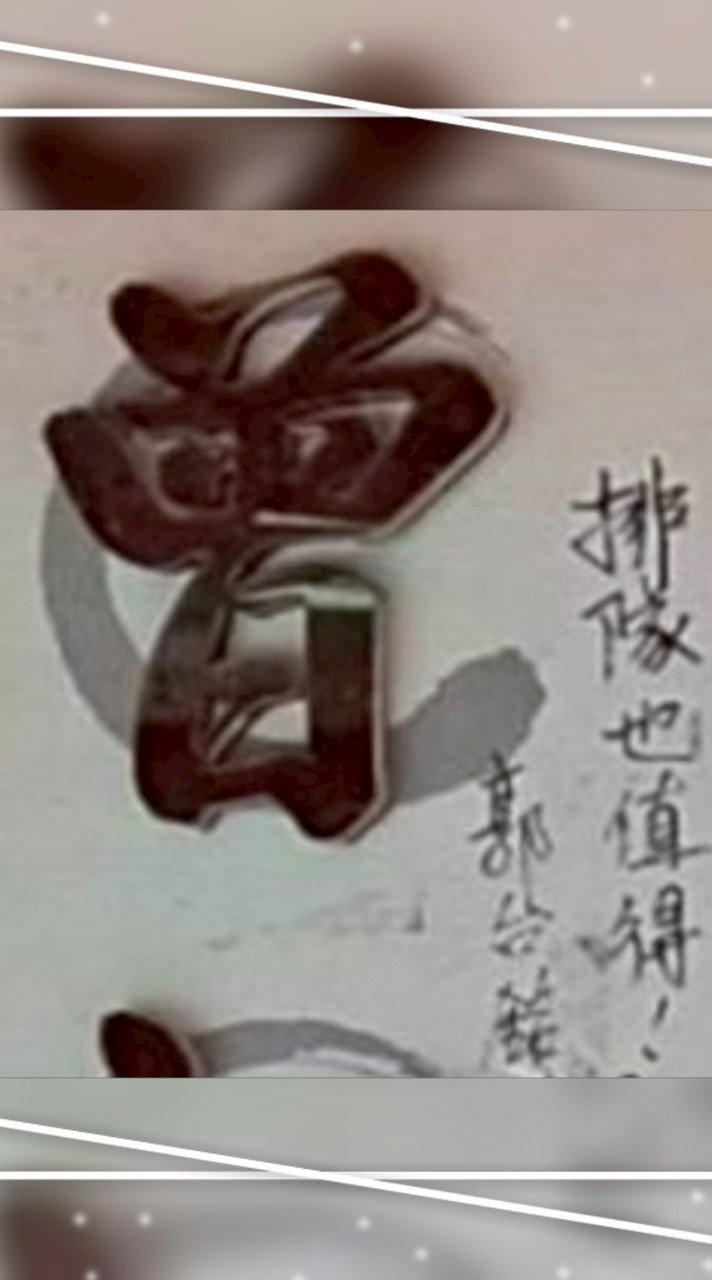 曾
排隊也值得！
郭台銘